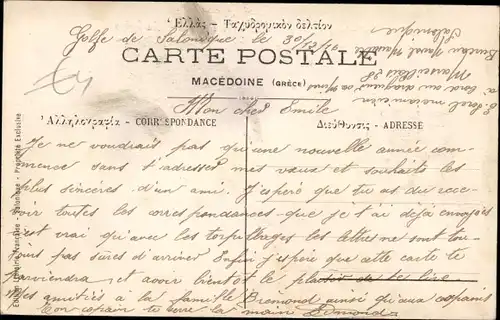 Ἑλλὰς – Ταχυδρομικὸν δελτίον
Golfe de Salonique le 30/12/16
CARTE POSTALE
MACÉDOINE (GRÈCE)
Mon cher Emile
Ἀλληλογραφία - CORRESPONDANCE
Διεύθυνσις - ADRESSE
Je ne voudrais pas qu'une nouvelle année com-
mence sans t'adresser mes vœux et souhaits les
plus sincères d'un ami. J'espère que tu as du rece-
voir toutes les correspondances que je t'ai déjà envoyés
est vrai qu'avec les torpillages les lettres ne sont tou-
jours pas sûres d'arriver Enfin j'espère que cette carte te
parviendra et avoir bientôt le plaisir de te lire
Mes amitiés à la famille Bremond ainsi qu'aux copains
Ton copain te serre la main Edmond
à bord du dragueur
Marseillais 18
Bureau Naval Marseille
Salonique
Edition Librairie Française - Salonique - Propriété Exclusive